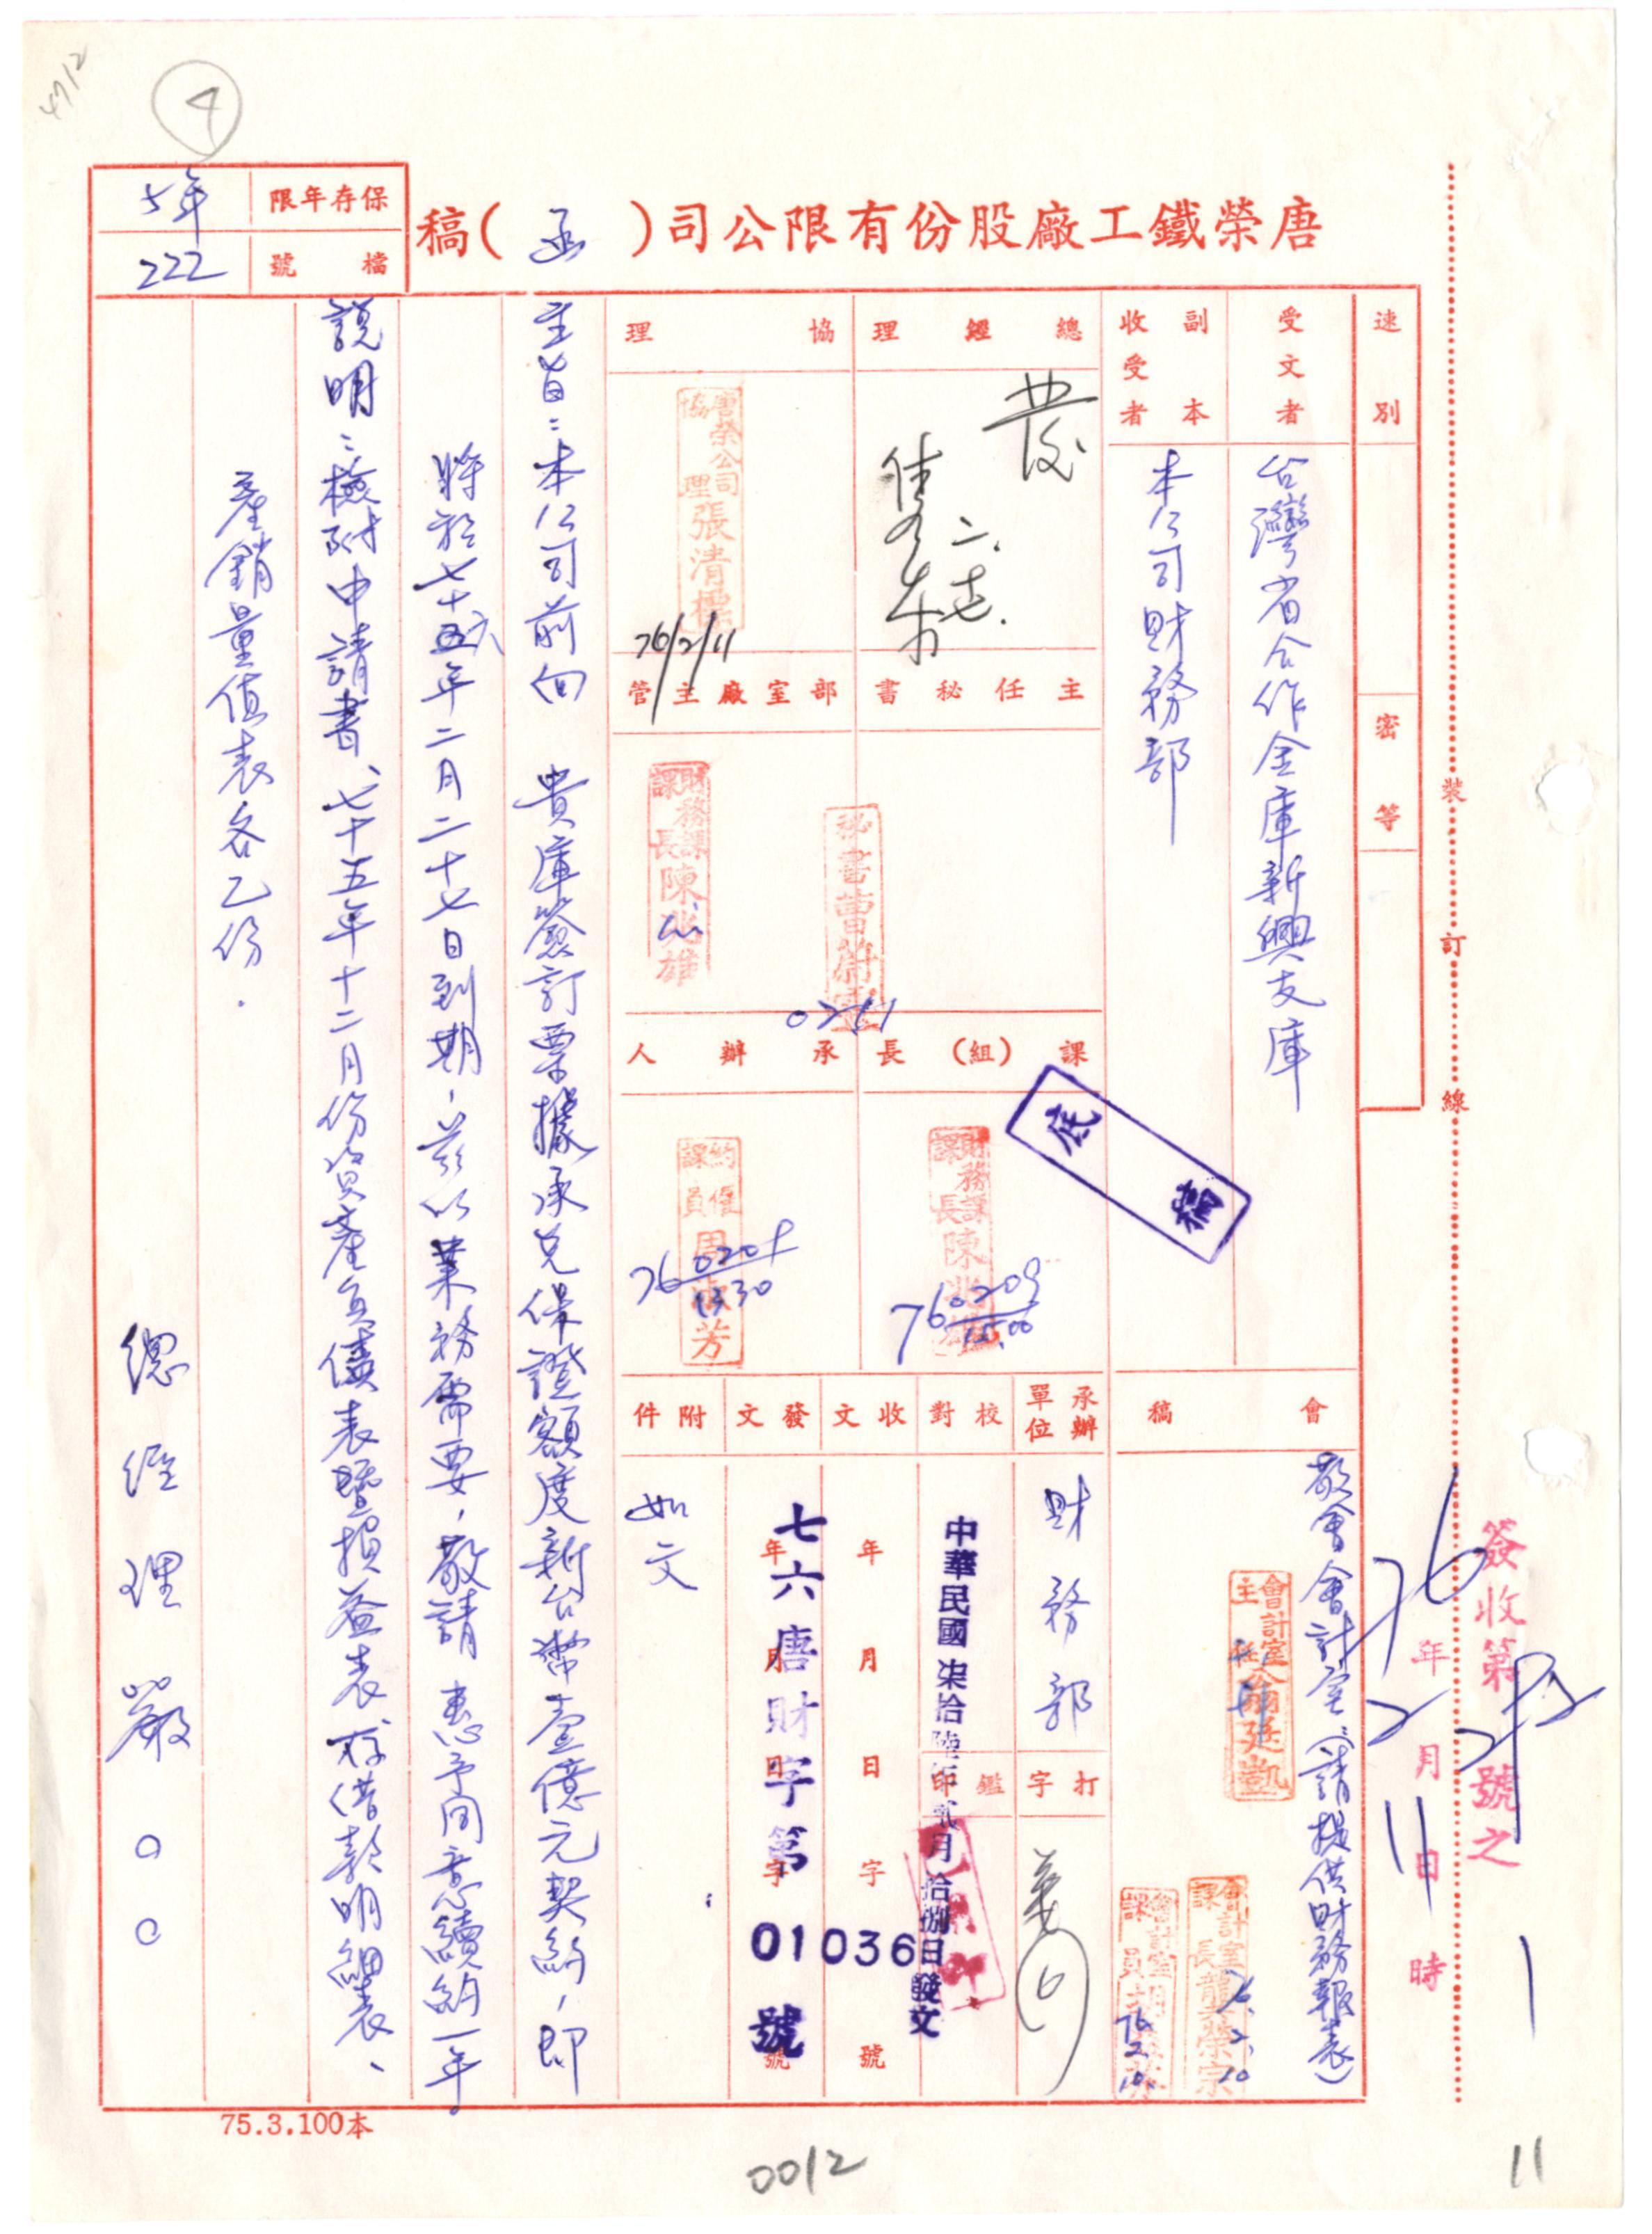 4712
4
保存年限
5年
檔號
222
唐榮鐵工廠股份有限公司(函)稿
速別
密等
受文者
台灣省合作金庫新興支庫
副本收受者
本公司財務部
總經理
發
二.
協理
唐榮公司
協理張清標
76/2/11
主任秘書
部室廠主管
財務課
課長陳兆雄
課(組)長
財務課
課長陳兆雄
760209
承辦人
約僱
課員周
芳
760209
1330
底稿
會稿
敬會會計室(請提供財務報表)
會計室
主任翁廷凱
會計室
課長龍榮宗
76.2.10
會計室
課員
76.2.10.
承辦單位
財務部
打字
校對
鑑印
中華民國柒拾陸年貳月拾捌日發文
收文
年月日字號
發文
年月日字號
七六唐財字第01036號
附件
如文
主旨:本公司前向 貴庫簽訂票據承兌保證額度新台幣壹億元契約,即
將於七十六年二月二十七日到期,茲以業務需要,敬請 惠予同意續約一年。
說明:檢附申請書、七十五年十二月份資產負債表暨損益表、存借款明細表、
產銷量值表各乙份.
總經理嚴○○
裝訂線
簽收第號之
292
1
76年2月11日時
75.3.100本
0012
11